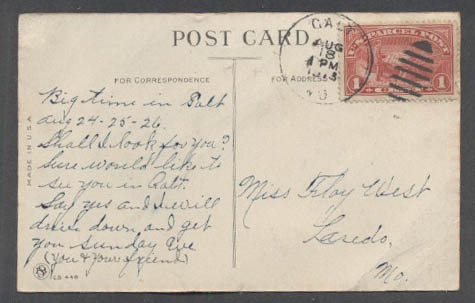 POST CARD.
GALT
AUG
18
1 PM
U.S. PARCEL POST
1 1
FOR CORRESPONDENCE
FOR ADDRESS
MADE IN U.S.A.
Big time in Galt
Aug 24-25-26
Shall I look for you?
Sure would like to
see you in Galt.
Say yes and I will
drive down and get
you Sunday Eve
(You & Your friend)
Miss Floy West
Laredo,
Mo.